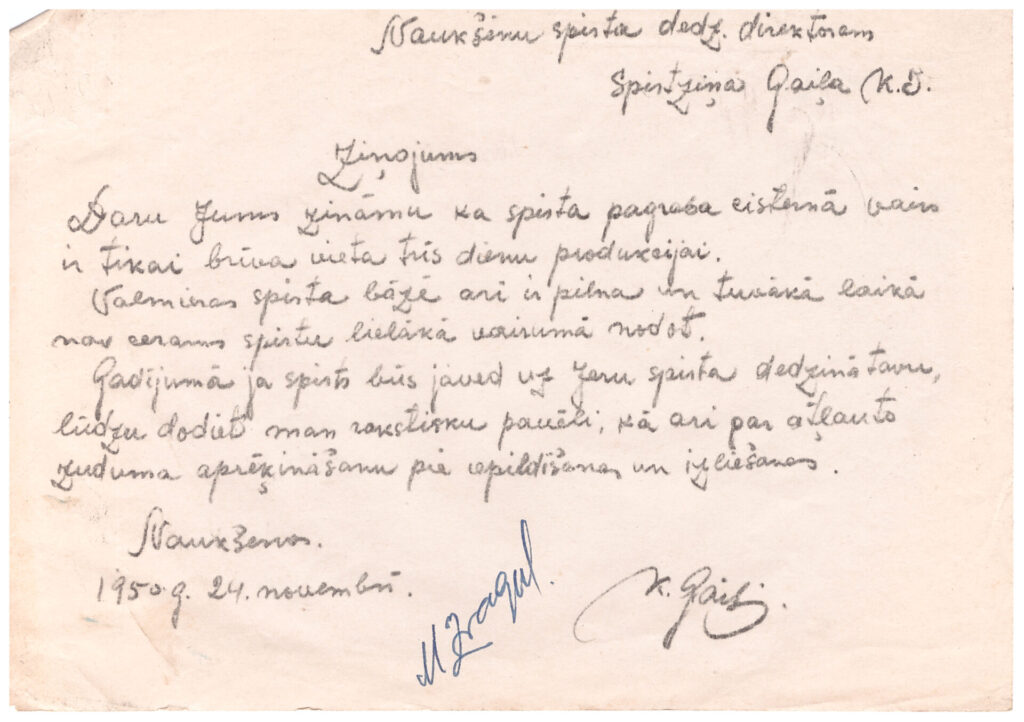 Naukšēnu spirta dedz. direktoram
Spirtziņa Gaiļa K.J.
Ziņojums
Daru Jums zināmu ka spirta pagraba cisternā vairs
ir tikai brīva vieta trīs dienu produkcijai.
Valmieras spirta bāzē ari ir pilna un tuvākā laikā
nav cerams spirtu lielākā vairumā nodot.
Gadījumā ja spirts būs jāved uz Jeru spirta dedzinātavu,
lūdzu dodiet man rakstisku pavēli, kā ari par atļauto
zuduma aprēķināšanu pie iepildīšanas un izliešanas.
Naukšenos.
1950.g. 24. novembrī.
K. Gaili